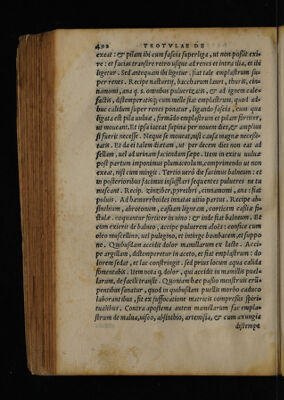 402 TROTVLAE DE
exeat: & pilam ibi cum fascia superliga, ut non possit exi-
re: et facias transire retro usque ad renes et intra ilia, et ibi
ligetur. Sed antequam ibi ligetur, fiat tale emplastrum su-
per renes. Recipe nasturtij, baccharum lauri, thuris, cin-
namomi, ana q. s. omnibus pulverizatis, & ad ignem cale-
factis, distemperatisq; cum melle fiat emplastrum, quod ad-
huc calidum super renes ponatur, ligando fascia, cum qua
ligata est pila uulvae, firmādo emplastrum et pilam firmiter,
ut moueant. Et ipsa iaceat supina per nouem dies, & amplius
si fuerit necesse. Neque se moueat, nisi causa magnae necessi-
tatis. Et da ei talem diaetam, ut per decem dies non eat ad
sellam, uel ad urinam faciendam saepe. Item in exitu uuluae
post partum imponimus plumaceolum, comprimendo ut non
exeat, nisi cum mingit. Tertio uerò die facimus balneum: et
in posterioribus facimus insufflari sequentes pulueres ne ea
moueant. Recip. zinziber, pyrethri, cinnamomi, ana: fiat
puluis. Ad haemorrhoides innatas uitio partus. Recipe ab-
sinthium, abrotonum, cassiam ligneam, corticem cassiae fi-
stulae. coquantur fortiter in uino: & inde fiat balneum. Et
cum exierit de balneo, accipe puluerem aloës: confice cum
oleo muscellino, uel pulegino, et intinge bombacem, et suppo-
ne. Quibusdam accidit dolor mamillarum ex lacte. Acci-
pe argillam, distemperetur in aceto, et fiat emplastrum: do
lorem sedat, et lac constringit. sed prius locum aqua calida
fomentabis. Item nota q. dolor, qui accidit in mamillis puel-
larum, de facili transit. Quoniam haec passio menstruis erū-
pentibus sanatur, quod in quibusdam puellis morbo caduco
laborantibus, fit ex suffocatione matricis compressis spiri-
tualibus. Contra apostema autem mamillarum fac empla-
strum de malua, uisco, absinthio, artemisia, & cum axungia
distempe